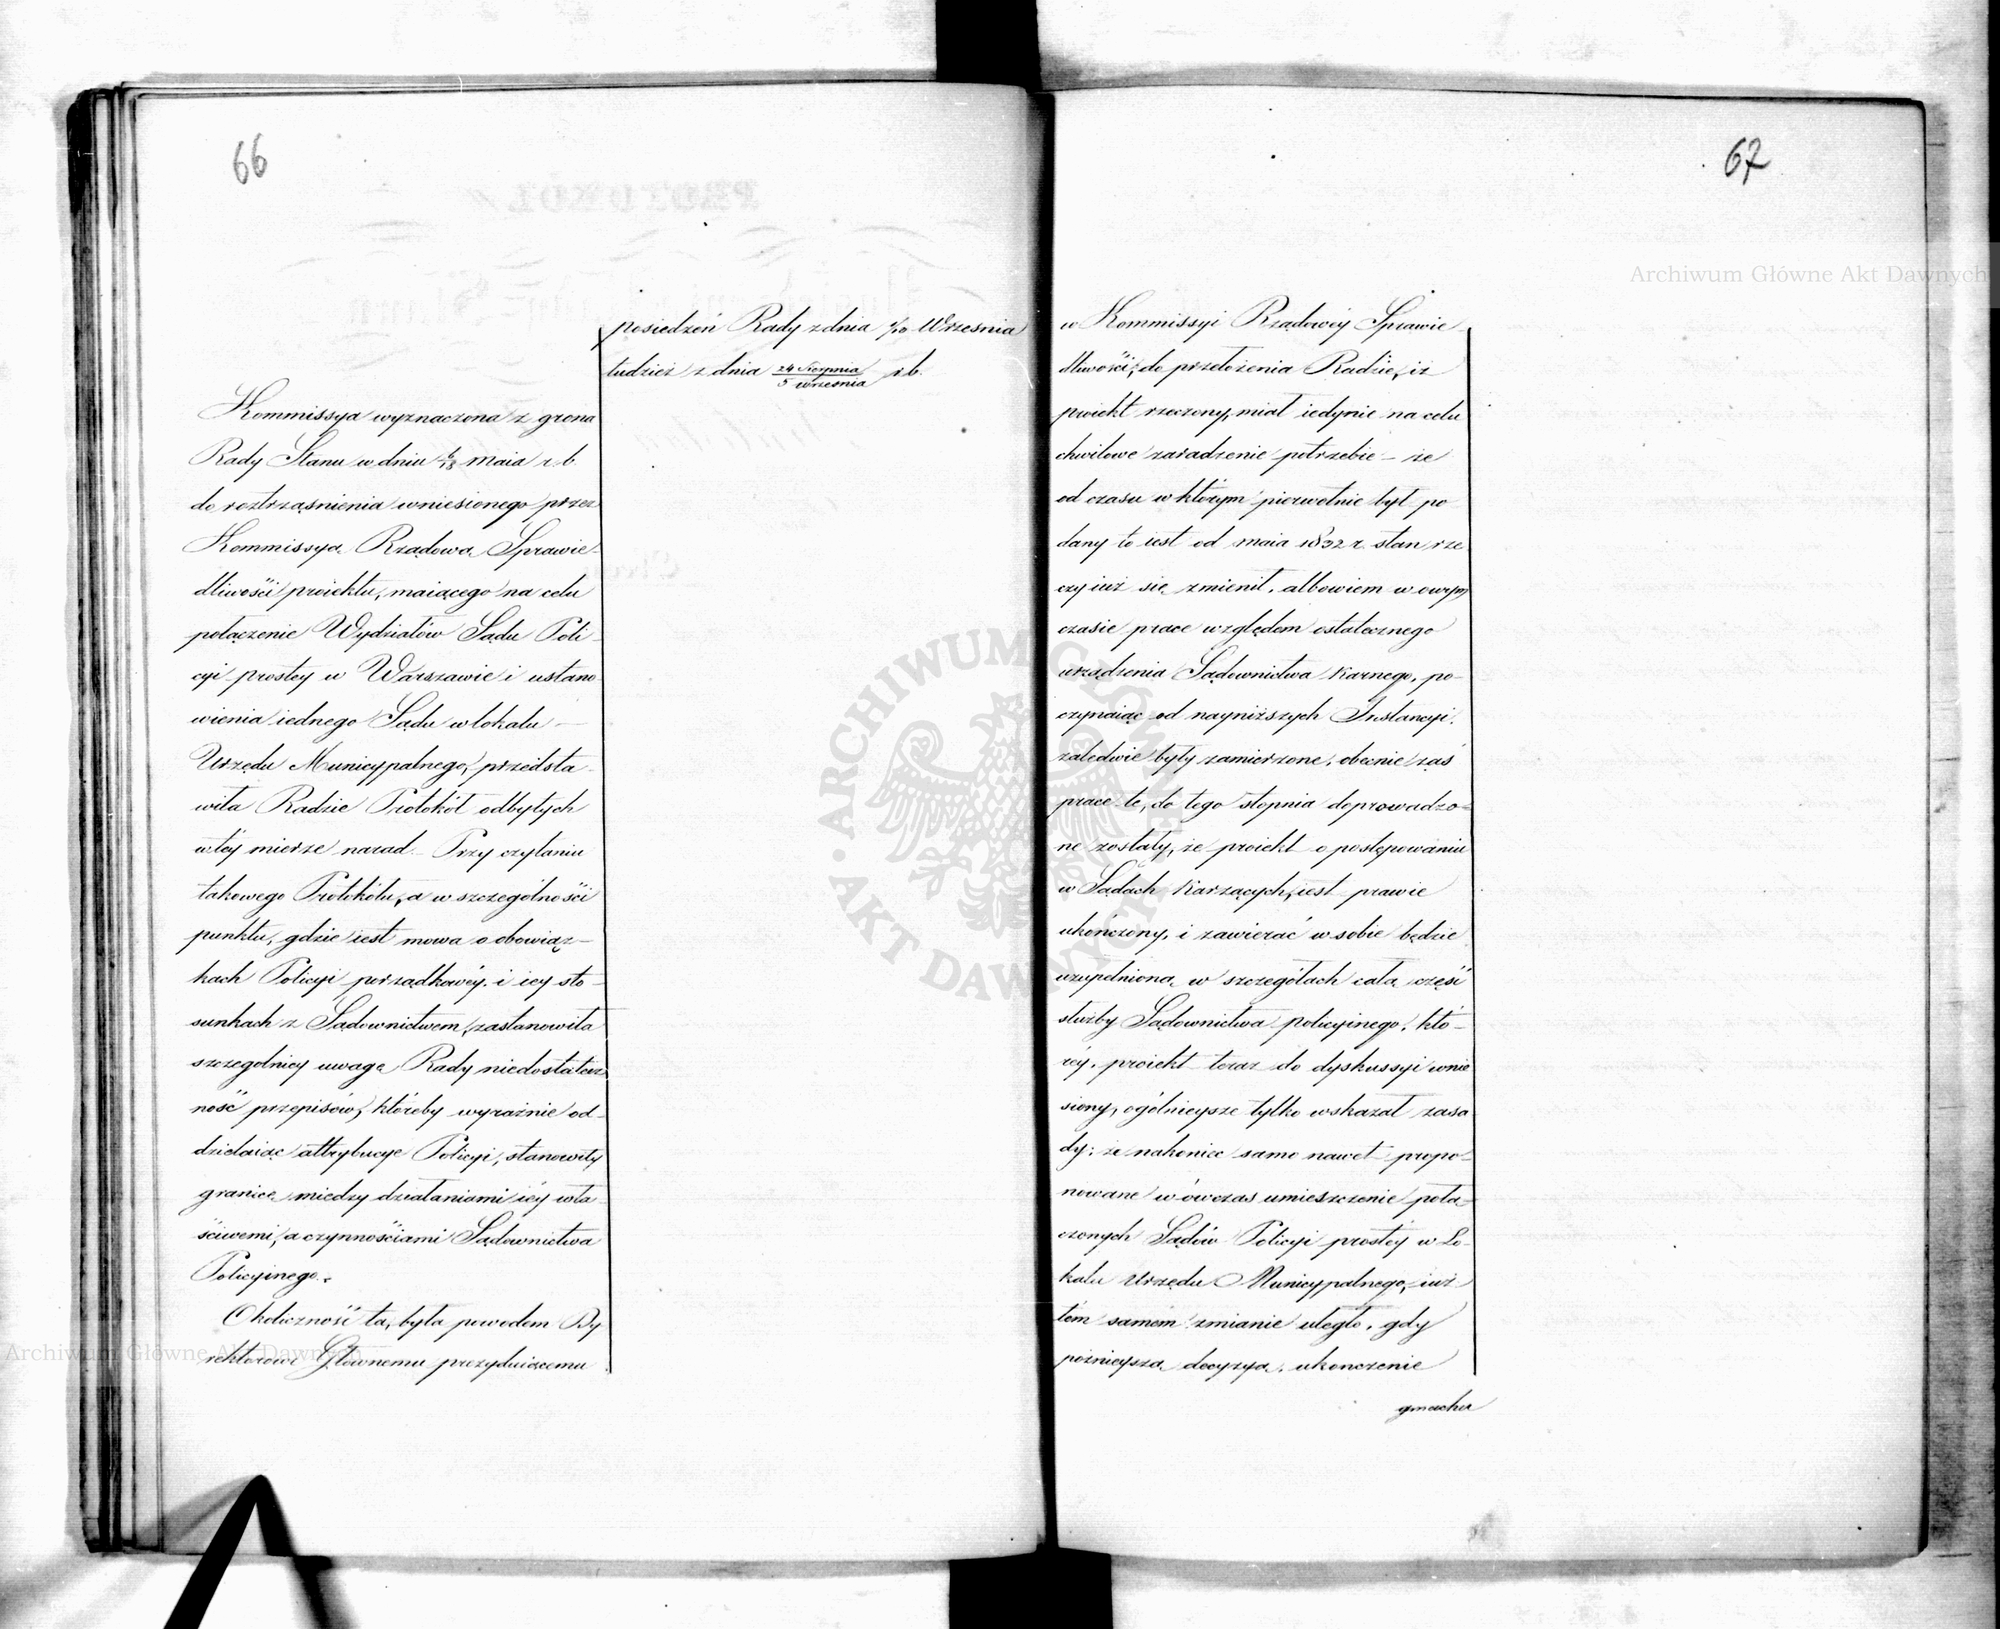 66
posiedzeń Rady z dnia Września
tudzież z dnia 24 Sierpnia / 5 września r.b.
Kommissya wyznaczona z grona
Rady Stanu w dniu 6/18 maia r.b.
do roztrząśnienia wniesionego przez
Kommissyą Rządową Sprawie-
dliwości proiektu, maiącego na celu
połączenie Wydziałów Sądu Poli-
cyi prostey w Warszawie i ustano
wienia iednego Sądu w lokalu —
Urzędu Municypalnego, przedsta-
wiła Radzie Protokół odbytych
w téy mierze narad. — Przy czytaniu
takowego Protokółu, a w szczególności
punktu, gdzie iest mowa o obowiąz-
kach Policyi porządkowéy i iey sto-
sunkach z Sądownictwem, zastanowiła
szczególniey uwagę Rady niedostatecz
ność przepisów, któreby wyraźnie od-
dzielaiąc attrybucye Policyi, stanowiły
granicę między działaniami iéy wła-
ściwemi, a czynnościami Sądownictwa
Policyinego.
Okoliczność ta, była powodem Dy
rektorowi Głównemu prezyduiącemu
67
w Kommissyi Rządowéy Sprawie-
dliwości, do przełożenia Radzie, iż
proiekt rzeczony, miał iedynie na celu
chwilowe zaradzenie potrzebie — że
od czasu w którym pierwotnie był po
dany to iest od maia 1832 r. stan rze
czy iuż się zmienił, albowiem w owym
czasie prace względem ostatecznego
urządzenia Sądownictwa Karnego, po-
czynaiąc od nayniższych Instancyi,
zaledwie były zamierzone, obecnie zaś
prace te, do tego stopnia doprowadzo-
ne zostały, że proiekt o postępowaniu
w Sądach Karzących, iest prawie
ukończony, i zawierać w sobie będzie
uzupełnioną w szczegółach całą część
służby Sądownictwa policyinego, któ-
réy, proiekt teraz do dyskussyi wnie
siony, ogólnieysze tylko wskazał zasa
dy; że nakoniec samo nawet propo-
nowane wówczas umieszczenie połą-
czonych Sądów Policyi prostéy w Lo-
kalu Urzędu Municypalnego, iuż
tém samém zmianie uległo, gdy
poźnieyszą decyzyą, ukończenie
gmachu